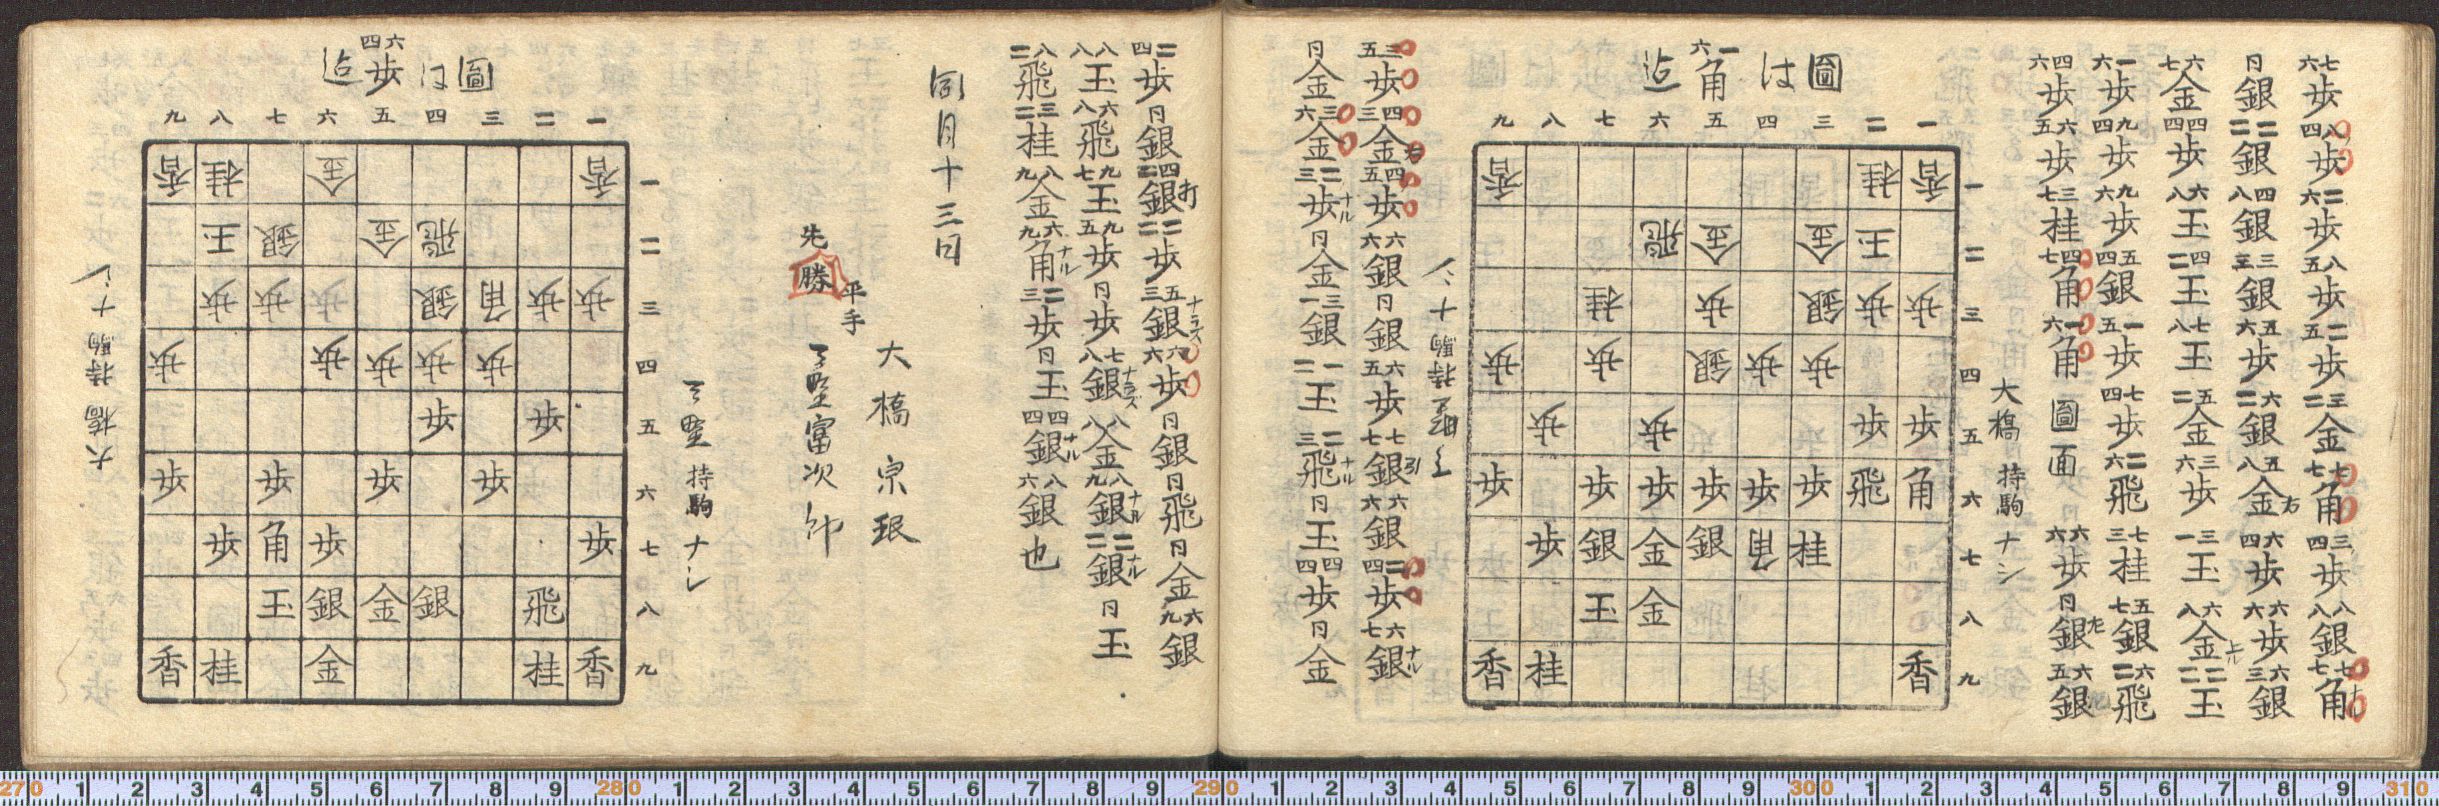 七六歩 八四歩 二六歩 八五歩 二五歩 三二金 七七角 三四歩 八八銀 七七角ナル
同銀 二二銀 四八銀 三三銀 五六歩 六二銀 五八金右 六四歩 六六歩 六三銀
六七金 四四歩 六八玉 四二玉 七八玉 五二金 三六歩 三一玉 六八金上ル 二二玉
一六歩 九四歩 九六歩 五四銀 一五歩 七四歩 二六飛 七三桂 五七銀 六二飛
四六歩 六五歩 三七桂 四七角 一六角 圖面 六六歩 同銀左 六五銀
大橋 持駒 ナシ
圖は一六角迠
九八七六五四三二一
香桂香 一
飛金金玉 二
桂歩銀歩歩 三
歩歩銀歩歩 四
歩歩歩歩 五
歩歩歩歩歩歩飛角 六
歩銀金銀角桂 七
玉金 八
香桂香 九
持駒
三五歩 四三金右 四五歩 六六銀 同銀 六五歩 七七銀引 六六銀 二四歩 六七銀ナル
同金 三六金 二三歩ナル 同金 三一銀 一二玉 二三飛ナル 同玉 四四歩 同金
二四歩 同銀 四二銀打 二二歩 五三銀ナラズ 六六歩 同銀 同飛 同金 六九銀
八八玉 六八飛 九七玉 九五歩 同歩 七八銀ナラズ 八八金 八九銀ナル 二二銀ナル 同玉
八二飛 三二桂 八九金 六九角ナル 二三歩 同玉 四四銀ナル 八六銀也
同月十三日
大橋宗珉
平手
先勝 富次郎
持駒 ナシ
圖は六四歩迠
九八七六五四三二一
香桂金香 一
玉銀金飛 二
歩歩歩銀角歩歩 三
歩歩歩歩歩 四
歩歩 五
歩歩歩歩 六
歩角歩歩 七
玉銀金銀飛 八
香桂金桂香 九
大橋 持駒 ナシ
270 1 2 3 4 5 6 7 8 9 280 1 2 3 4 5 6 7 8 9 290 1 2 3 4 5 6 7 8 9 300 1 2 3 4 5 6 7 8 9 310